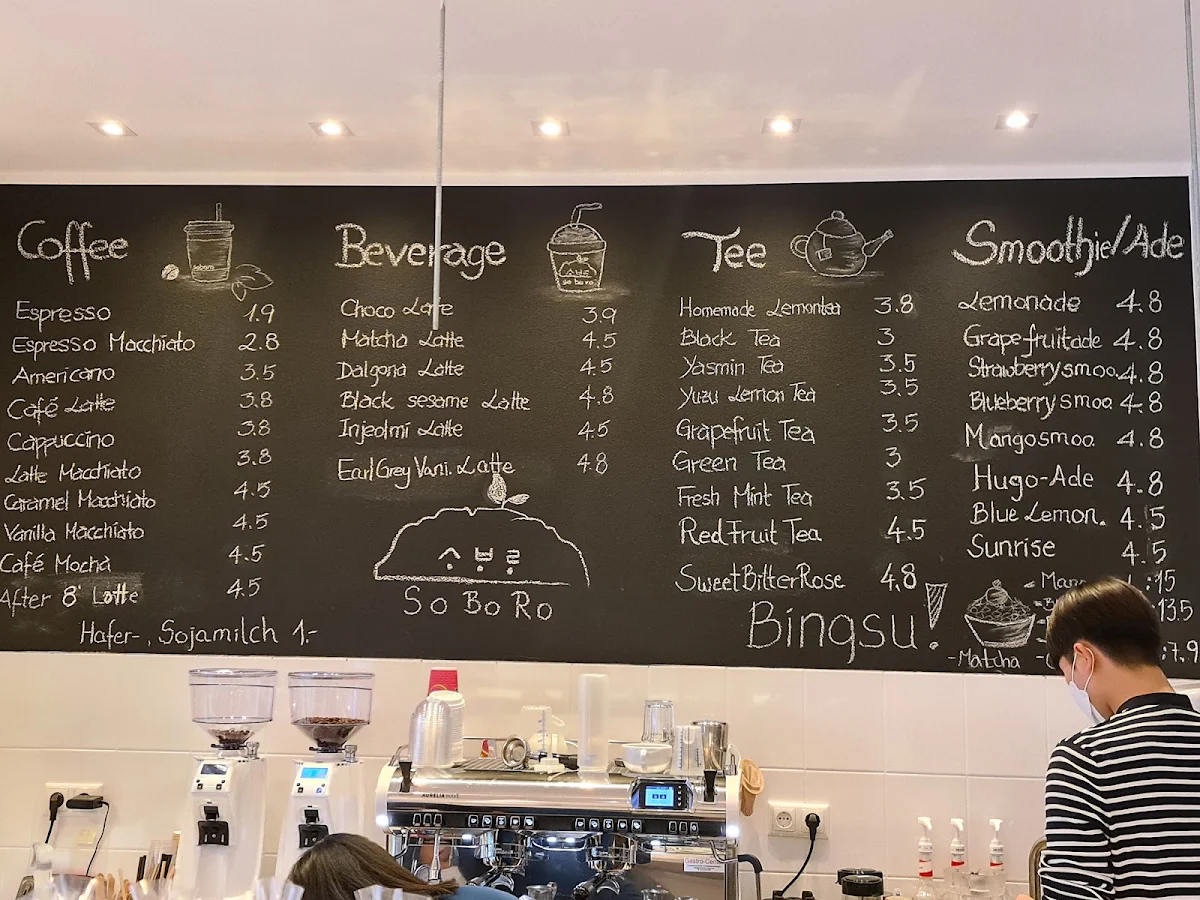 Coffee
Espresso 1.9
Espresso Macchiato 2.8
Americano 3.5
Café Latte 3.8
Cappuccino 3.8
Latte Macchiato 3.8
Caramel Macchiato 4.5
Vanilla Macchiato 4.5
Café Mocha 4.5
After 8' Latte 4.5
Hafer-, Sojamilch 1,-
Beverage
so bo ro
Choco Latte 3.9
Matcha Latte 4.5
Dalgona Latte 4.5
Black sesame Latte 4.8
Injeolmi Latte 4.5
Earl Grey Vani. Latte 4.8
소보로
So Bo Ro
Tee
Homemade Lemontea 3.8
Black Tea 3
Yasmin Tea 3.5
Yuzu Lemon Tea 3.5
Grapefruit Tea 3.5
Green Tea 3
Fresh Mint Tea 3.5
Red Fruit Tea 4.5
Sweet Bitter Rose 4.8
Smoothie/Ade
Lemonade 4.8
Grapefruitade 4.8
Strawberry smoo. 4.8
Blueberry smoo 4.8
Mango smoo. 4.8
Hugo-Ade 4.8
Blue Lemon. 4.5
Sunrise 4.5
Bingsu!
:15
13.5
-Matcha :7.9
AURELIA